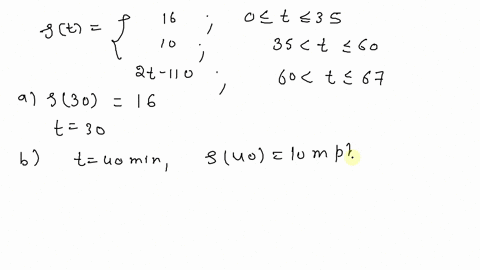 s(t) = { 16 ; 0 ≤ t ≤ 35
10 ; 35 < t ≤ 60
2t-110 ; 60 < t ≤ 67
a) s(30) = 16
t = 30
b) t = 40 min, s(40) = 10 mph